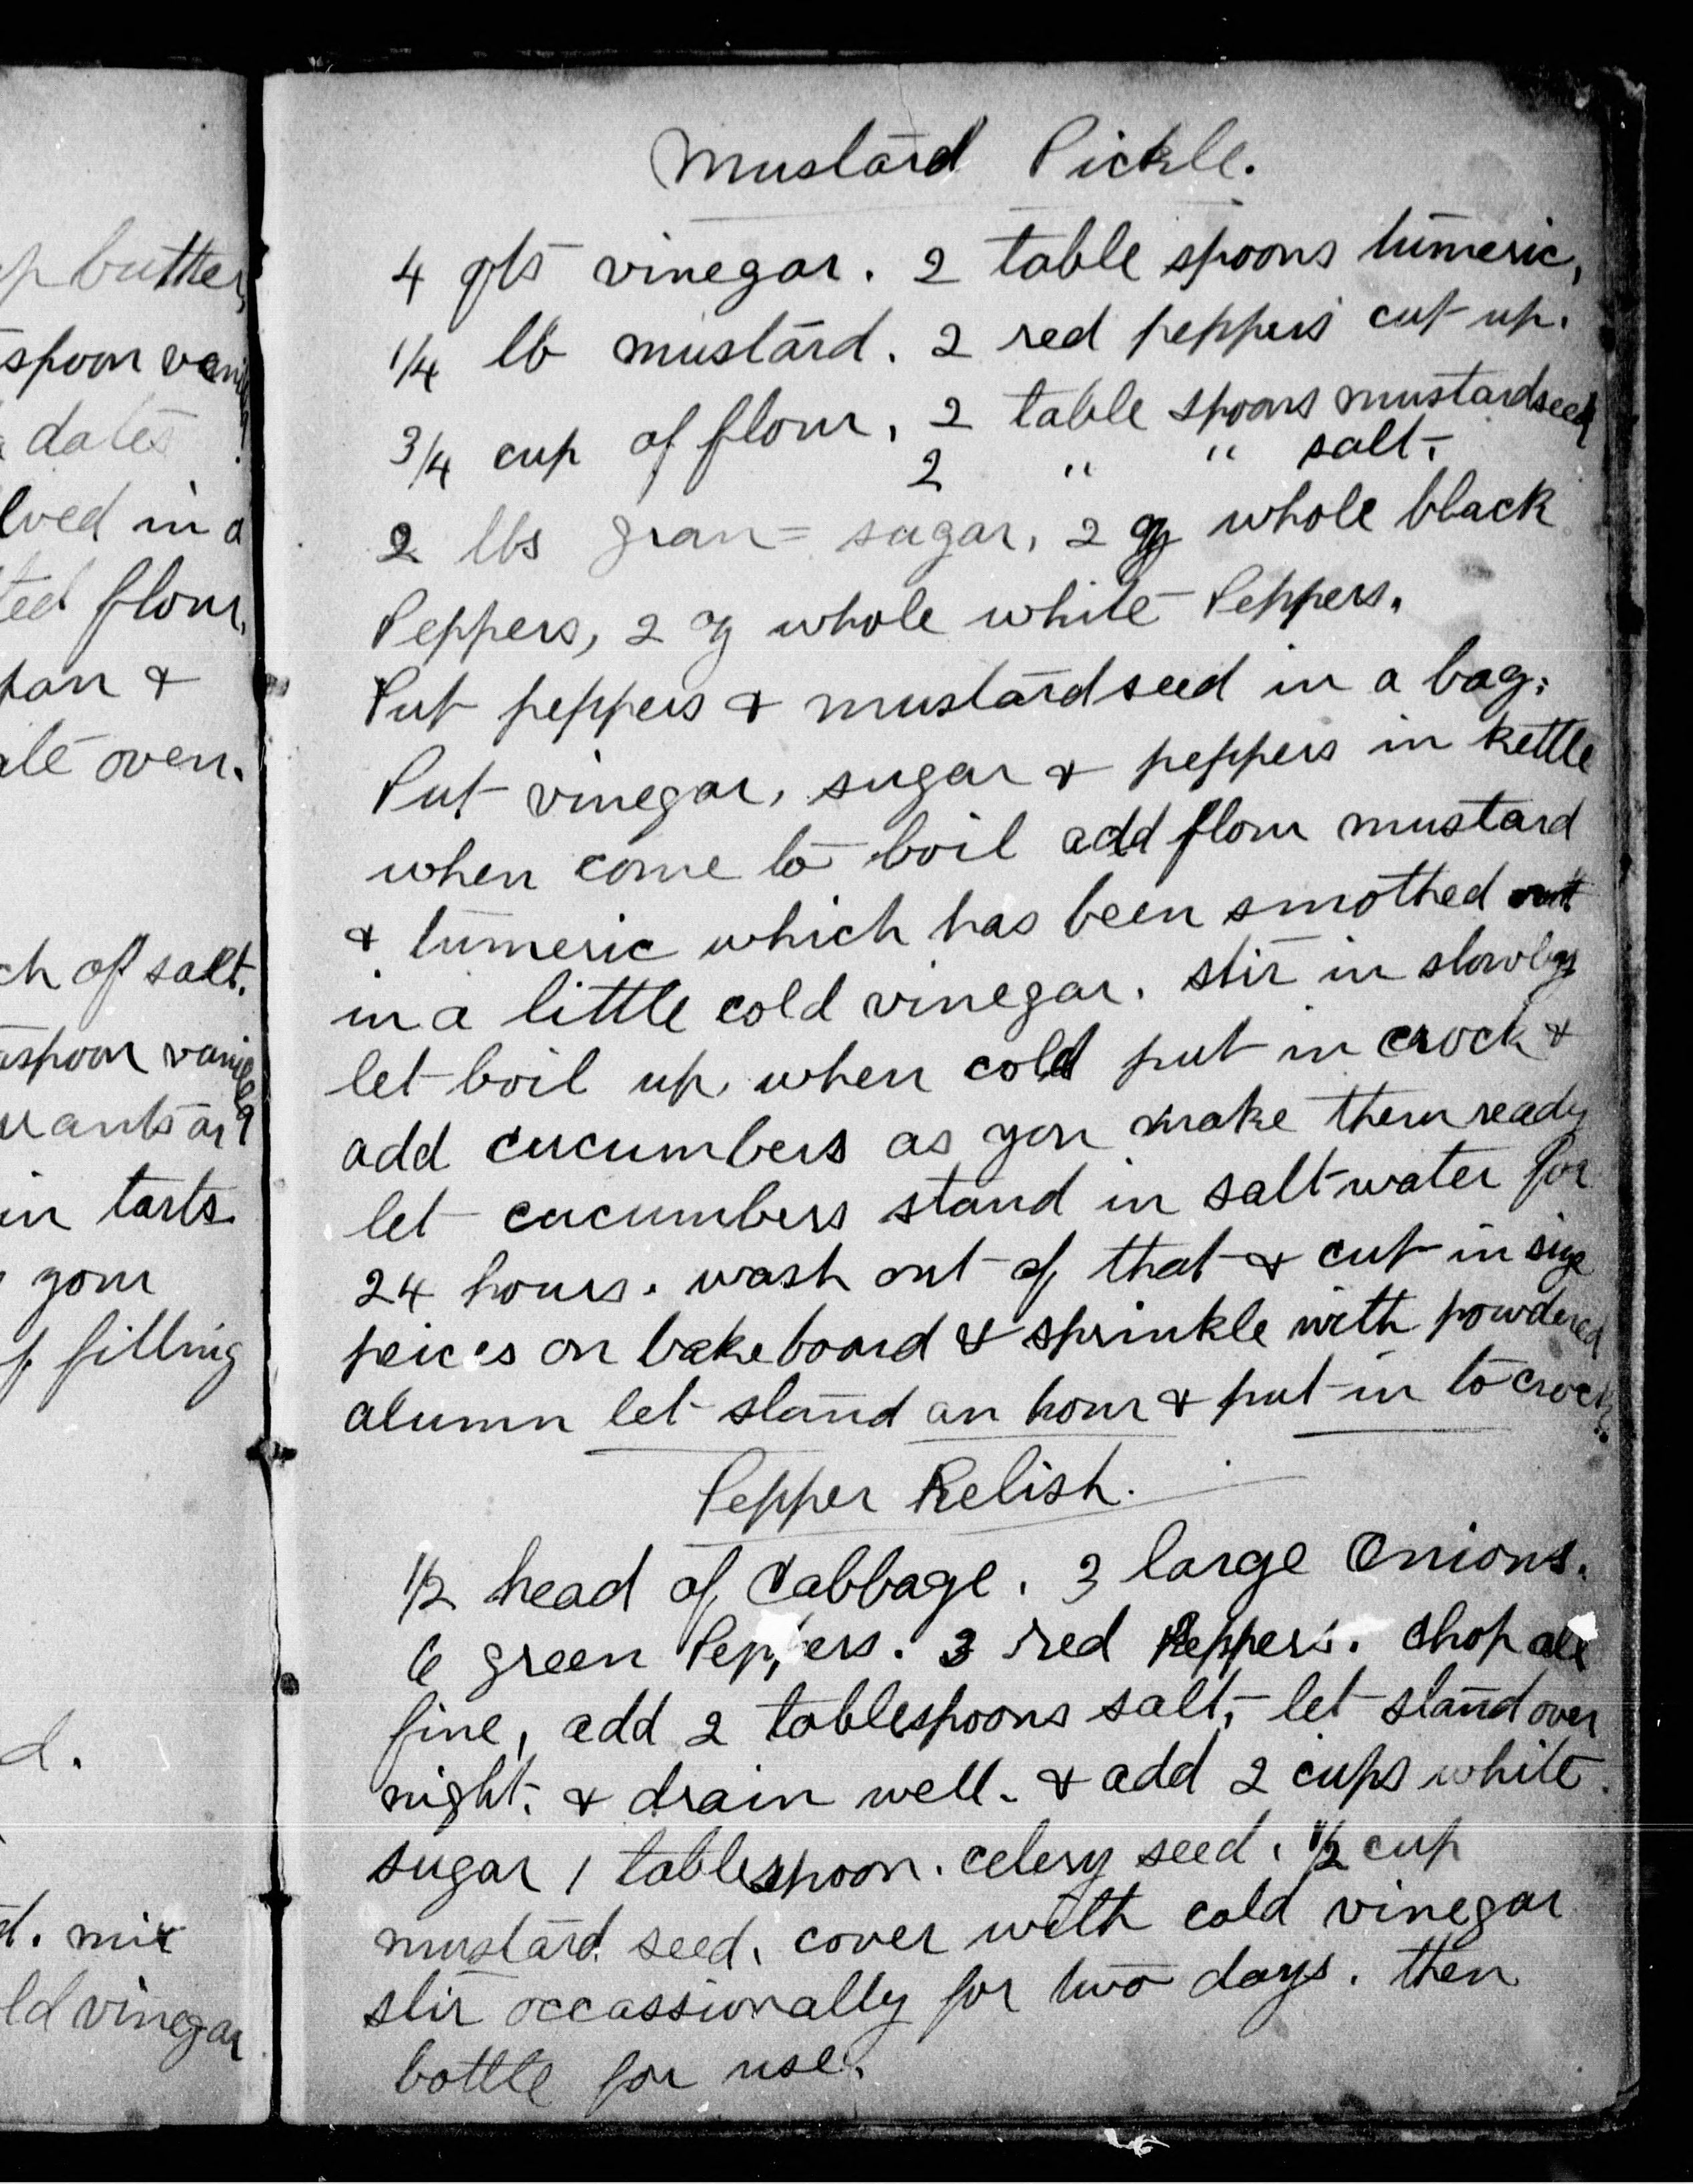 p butter,
spoon vanilla
dates
lved in a
ted flour,
pan &
ate oven.
ch of salt.
aspoon vanilla
urants or
in tarts
your
filling
d.
d. mix
ld vinegar
Mustard Pickle.
4 qts vinegar. 2 table spoons tumeric,
1/4 lb mustard. 2 red peppers cut up.
3/4 cup of flour, 2 table spoons mustardseed
2 " " salt.
2 lbs gran= sugar, 2 oz whole black
Peppers, 2 oz whole white Peppers.
Put peppers & mustardseed in a bag.
Put vinegar, sugar & peppers in kettle
when come to boil add flour mustard
& tumeric which has been smothed out
in a little cold vinegar. stir in slowly
let boil up, when cold put in crock &
add cucumbers as you make them ready
let cucumbers stand in salt water for
24 hours. wash out of that & cut in size
peices on bakeboard & sprinkle with powdered
alumn let stand an hour & put in to crock.
Pepper Relish.
1/2 head of Cabbage. 3 large Onions.
6 green Peppers. 3 red Peppers. Chop all
fine, add 2 tablespoons salt, let stand over
night. & drain well. & add 2 cups white
sugar 1 tablespoon. celery seed. 1/2 cup
mustard seed. cover with cold vinegar
stir occassionally for two days. then
bottle for use.